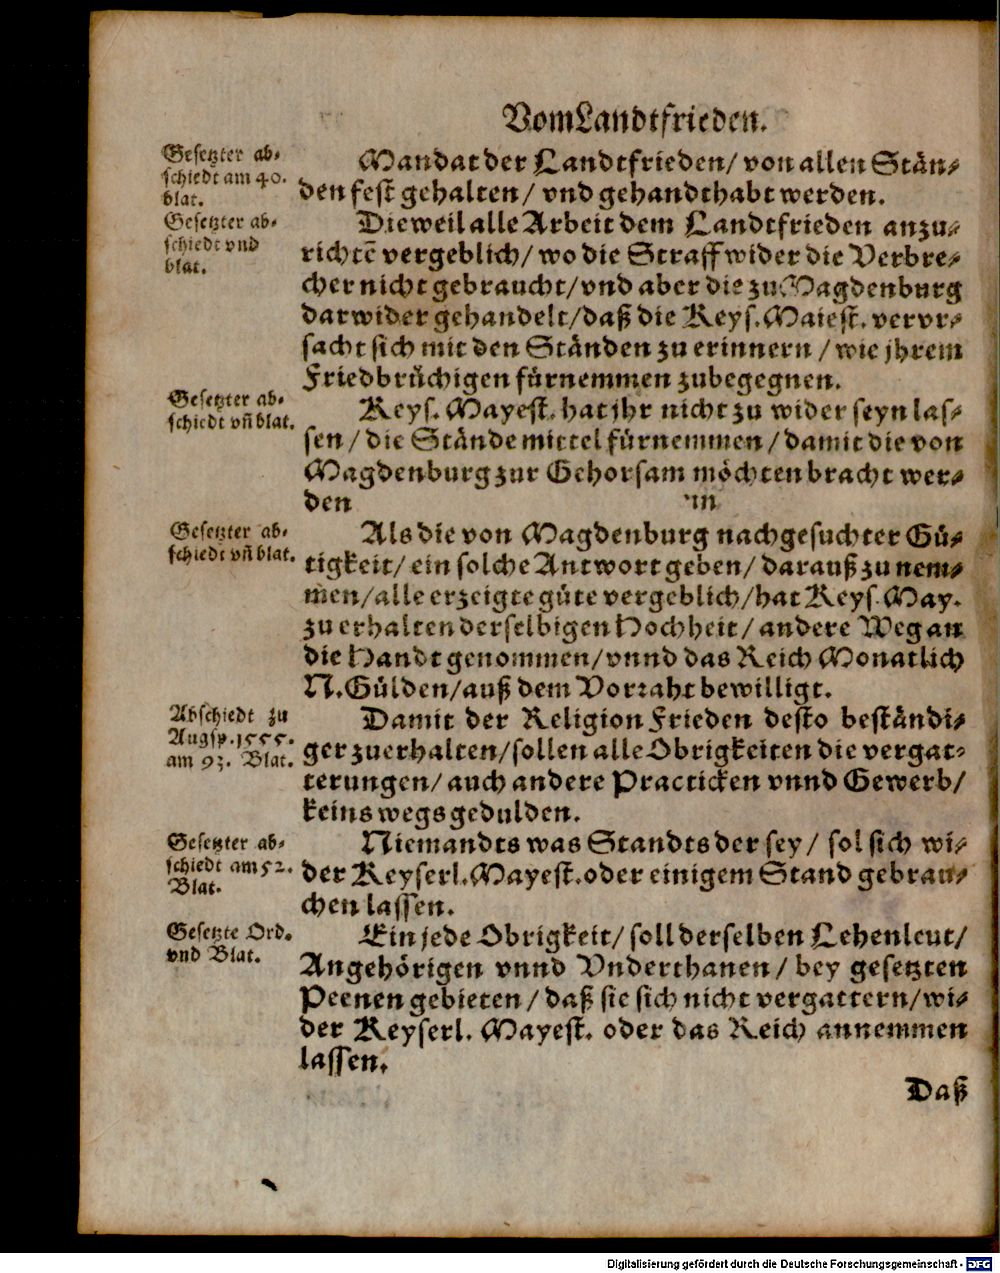 Vom Landtfrieden.
Gesetzter ab⸗
schiedt am 40.
blat.
Mandat der Landtfrieden/ von allen Stän⸗
den fest gehalten/ vnd gehandthabt werden.
Gesetzter ab⸗
schiedt vnd
blat.
Dieweil alle Arbeit dem Landtfrieden anzu⸗
richtē vergeblich/ wo die Straff wider die Verbre⸗
cher nicht gebraucht/ vnd aber die zu Magdenburg
darwider gehandelt/ daß die Keys. Maiest. vervr⸗
sacht sich mit den Ständen zu erinnern / wie jhrem
Friedbrüchigen fürnemmen zubegegnen.
Gesetzter ab⸗
schiedt vñ blat.
Keys. Mayest. hat jhr nicht zu wider seyn las⸗
sen / die Stände mittel fürnemmen / damit die von
Magdenburg zur Gehorsam möchten bracht wer⸗
den
Gesetzter ab⸗
schiedt vñ blat.
Als die von Magdenburg nachgesuchter Gü⸗
tigkeit/ ein solche Antwort geben/ darauß zu nem⸗
men/ alle erzeigte güte vergeblich/ hat Keys. May.
zu erhalten derselbigen Hochheit/ andere Weg an
die Handt genommen/ vnnd das Reich Monatlich
N. Gülden/ auß dem Vorraht bewilligt.
Abschiedt zu
Augsp. 1555.
am 93. Blat.
Damit der Religion Frieden desto beständi⸗
ger zuerhalten/ sollen alle Obrigkeiten die vergat⸗
terungen/ auch andere Practicken vnnd Gewerb/
keins wegs gedulden.
Gesetzter ab⸗
schiedt am 52.
Blat.
Niemandts was Standts der sey/ sol sich wi⸗
der Keyserl. Mayest. oder einigem Stand gebrau⸗
chen lassen.
Gesetzte Ord.
vnd Blat.
Ein jede Obrigkeit/ soll derselben Lehenleut/
Angehörigen vnnd Vnderthanen / bey gesetzten
Peenen gebieten / daß sie sich nicht vergattern/ wi⸗
der Keyserl. Mayest. oder das Reich annemmen
lassen.
Daß
Digitalisierung gefördert durch die Deutsche Forschungsgemeinschaft - DFG